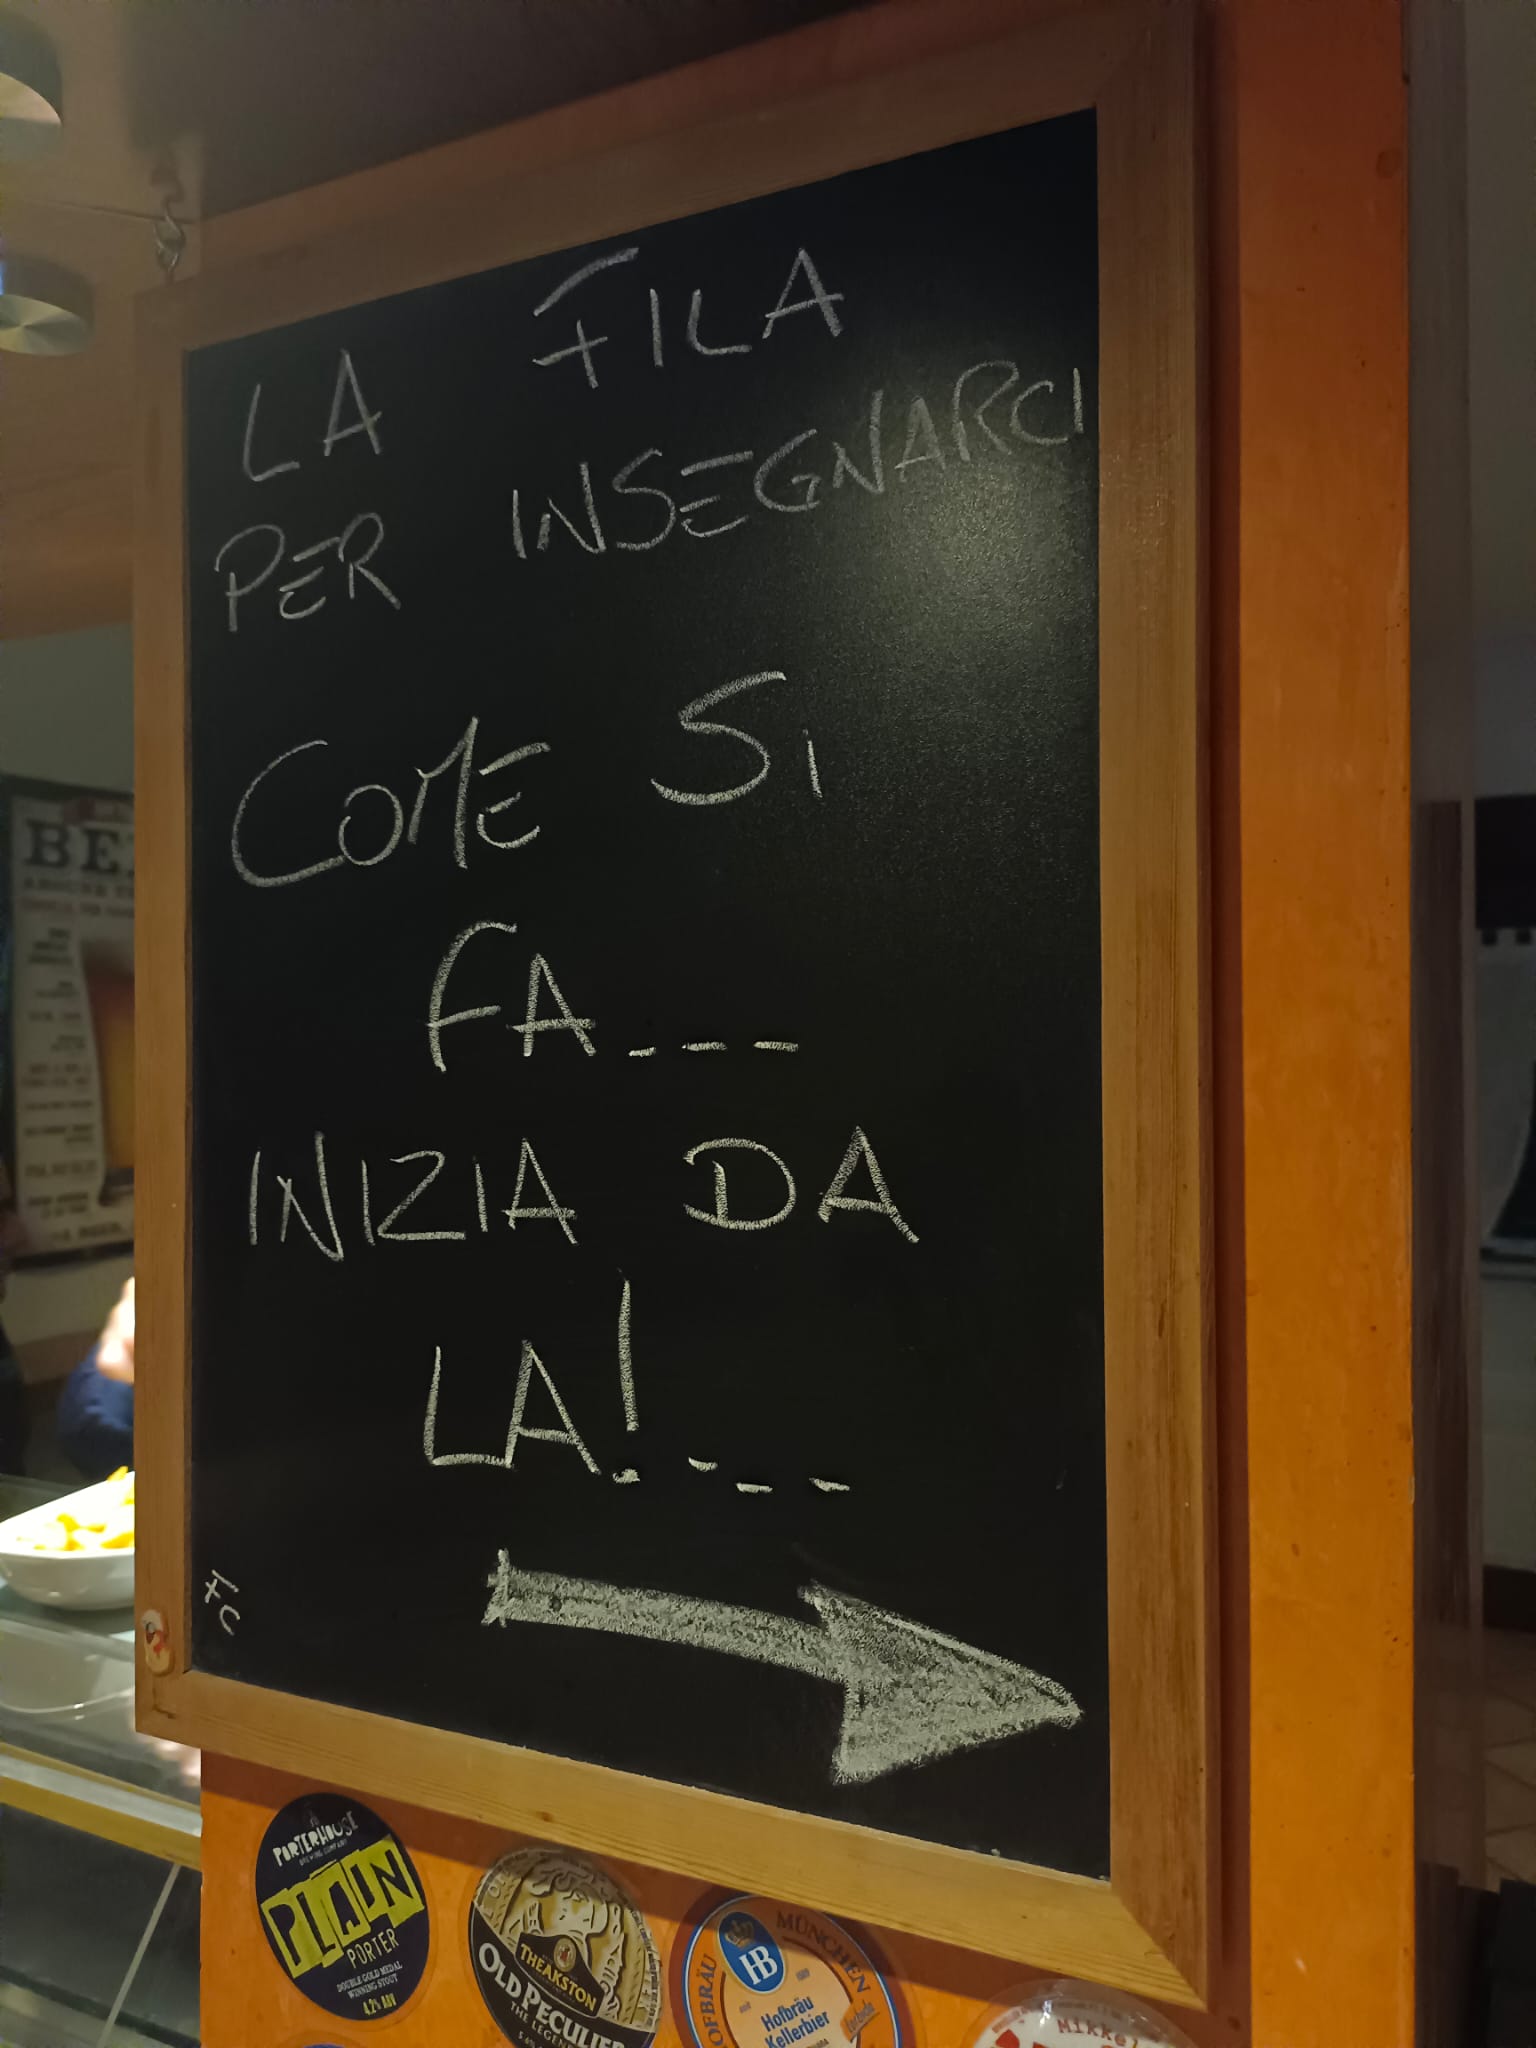 LA FILA
PER INSEGNARCI
COME Si
FA...
INIZIA DA
LA!...
FC
PORTERHOUSE
BREWING COMPANY
PLAIN
PORTER
DOUBLE GOLD MEDAL
WINNING STOUT
4.2% ABV
THEAKSTON
OLD PECULIER
THE LEGEN
HOFBRÄU
MÜNCHEN
HB
Hofbräu
Kellerbier
Mikkel
BE